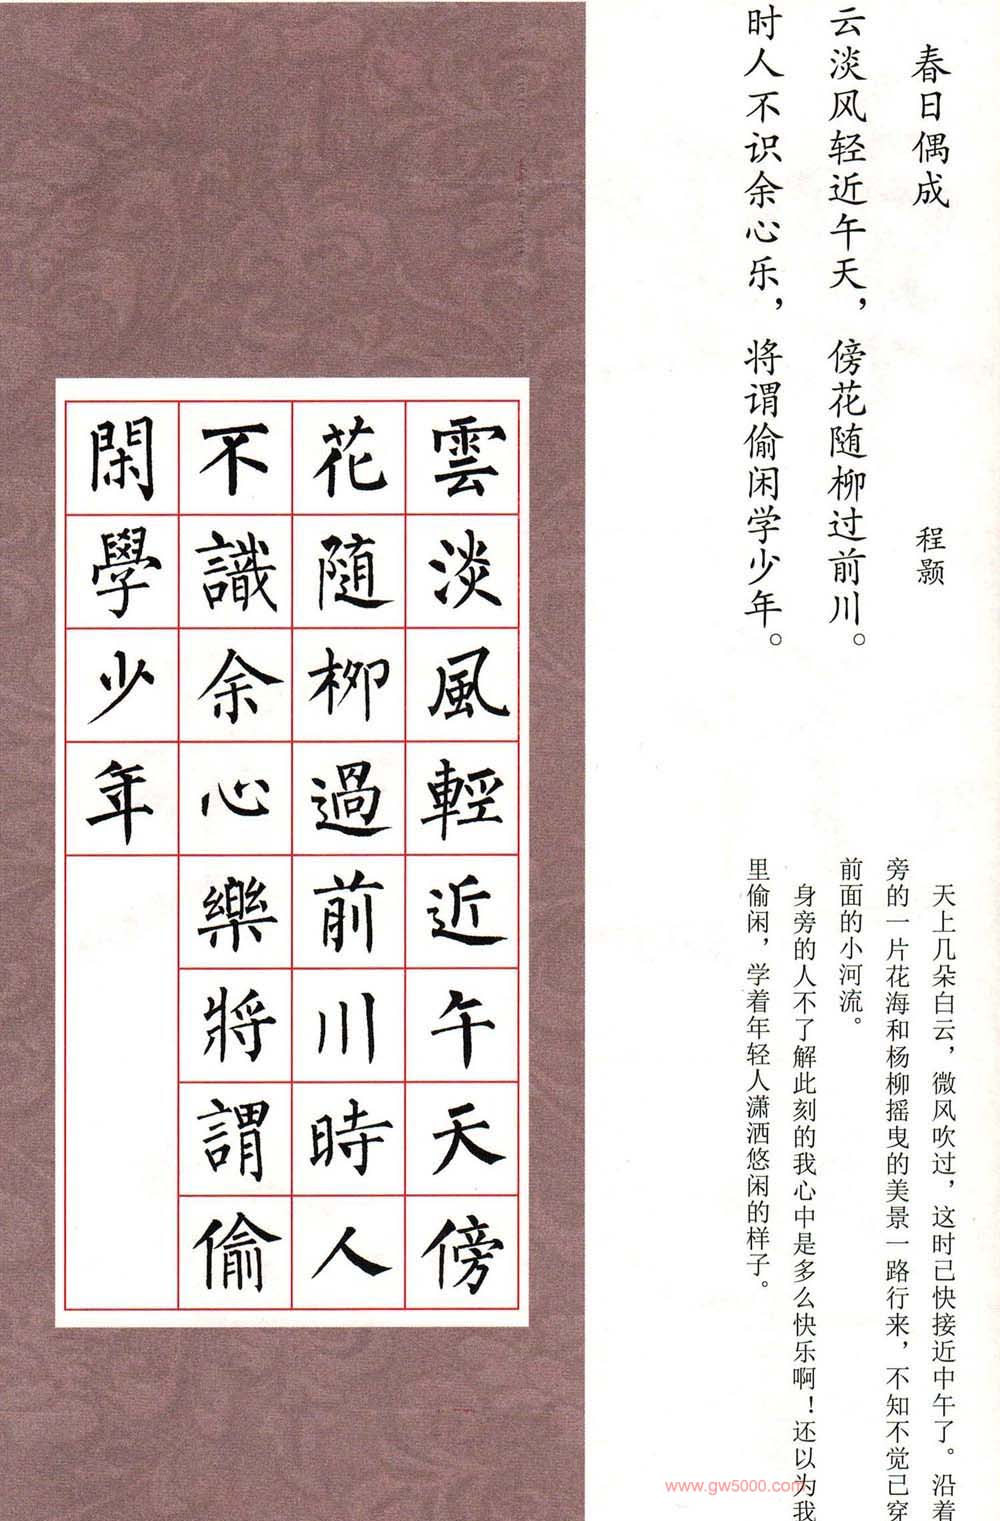 春日偶成
程颢
云淡风轻近午天，傍花随柳过前川。
时人不识余心乐，将谓偷闲学少年。
天上几朵白云，微风吹过，这时已快接近中午了。沿着
旁的一片花海和杨柳摇曳的美景一路行来，不知不觉已穿
前面的小河流。
身旁的人不了解此刻的我心中是多么快乐啊！还以为我
里偷闲，学着年轻人潇洒悠闲的样子。
雲淡風輕近午天傍
花随柳過前川時人
不識余心樂將謂偷
閑學少年
www.gw5000.com